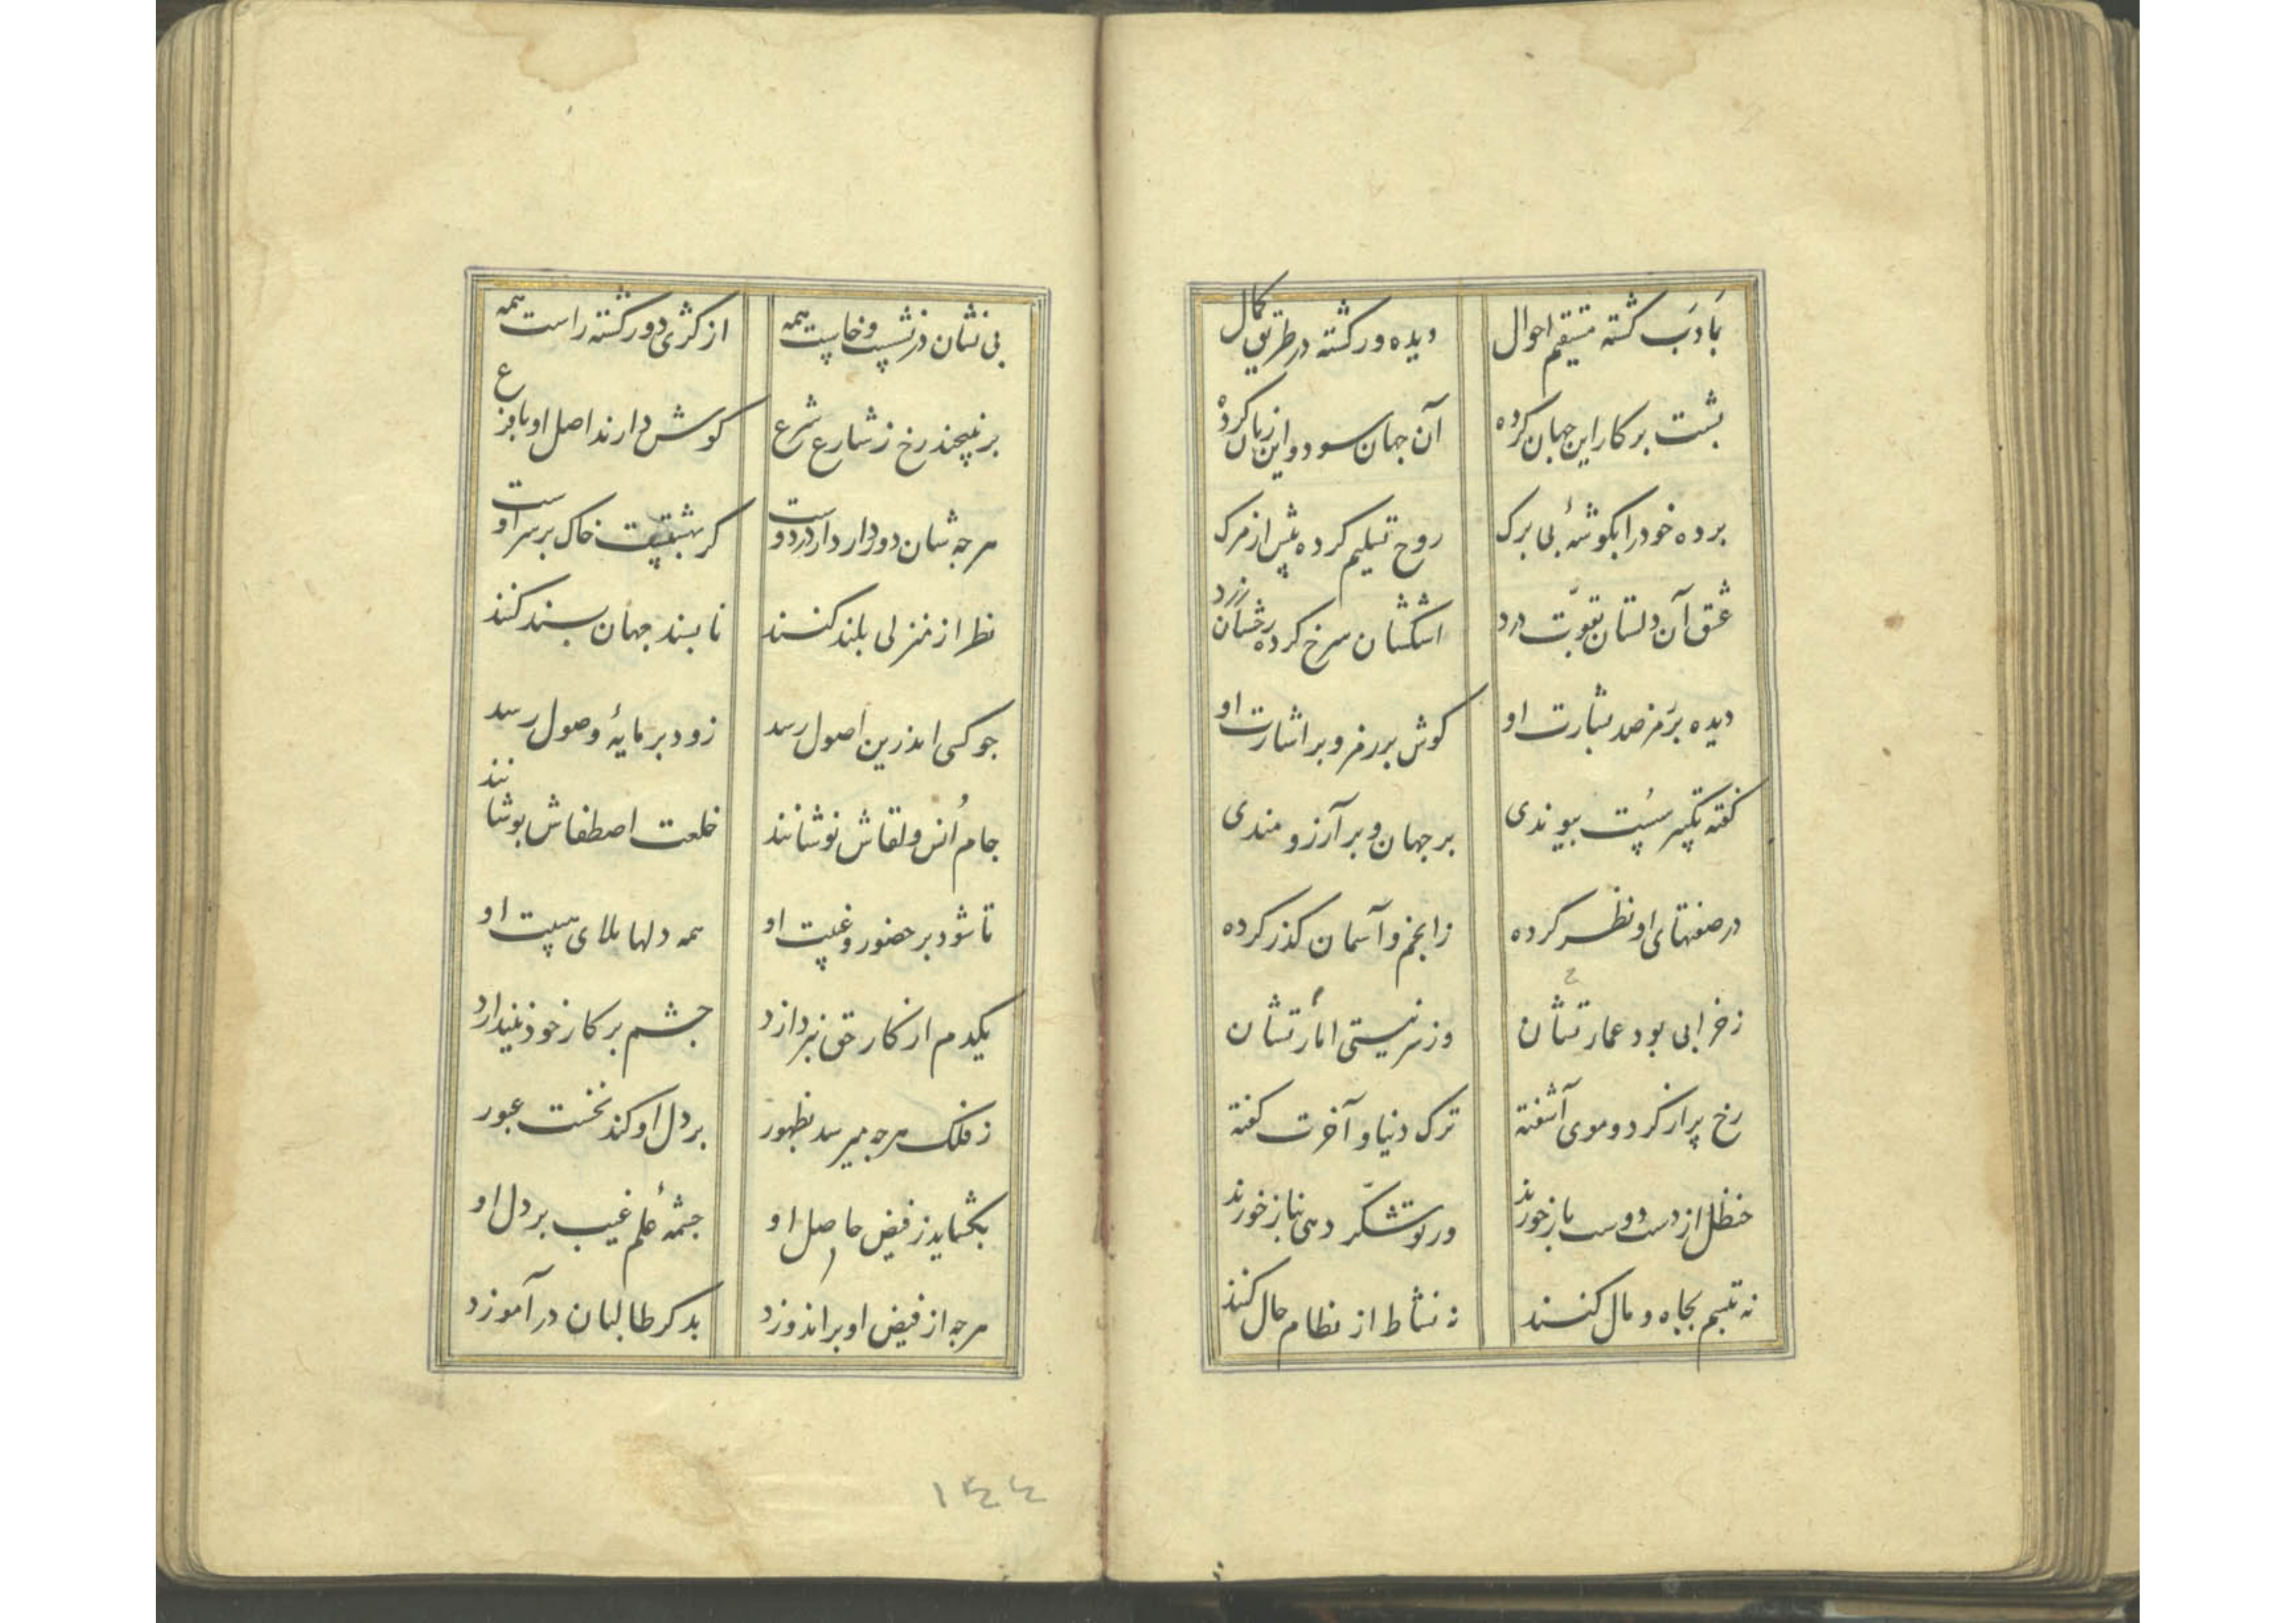 بادب گشته مستقیم احوال دیده ور گشته در طریق کمال
پشت بر کار این جهان کرده آن جهان سود و این زیان کرده
برده خود را بگوشهٔ بی برک روح تسلیم کرده پیش از مرک
عشق آن دلستان بقوت درد اشکشان سرخ کرده رخشان زرد
دیده بر مرصد بشارت او کوش بر رمز و بر اشارت او
گفته تکبیر سست پیوندی بر جهان و بر آرزومندی
در صفتهای او نظر کرده ز انجم و آسمان کذر کرده
ز خرابی بود عمارتشان وز سر نیستی امارتشان
رخ پر از کرد و موی آشفته ترک دنیا و آخرت کفته
حنظل از دست دوست باز خورند ور تو شکر دهی بناز خورند
نه تبسم بجاه و مال کنند نه نشاط از نظام حال کنند
بی نشان در نشست و خاست همه از کژی دور گشته راست همه
بر نپیچند رخ ز شارع شرع کوش دارند اصل او با فرع
هرجه شان دور دارد از در دوست کر بهشتست خاک بر سر اوست
نظر از منزلی بلند کنند نا بسند جهان بسند کنند
جو کسی اندرین اصول رسد زود بر مایهٔ وصول رسد
جام اُنس و لقاش نوشانند خلعت اصطفاش بوشانند
تا شود بر حضور و غیبت او همه دلها ملای هیبت او
یکدم از کار حق نپردازد جشم بر کار خود نیندازد
ز فلک هرجه میرسد بظهور بر دل او کند نخست عبور
بکشاید ز فیض حاصل او جشمهٔ علم غیب بر دل او
هرجه از فیض او بر اندوزد بدکر طالبان در آموزد
۱۴۴